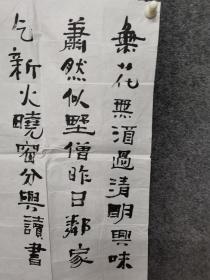 無花無酒過清明興味
蕭然似野僧昨日鄰家
乞新火曉窗分與讀書